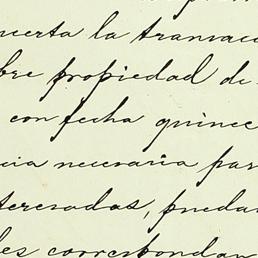 ncerta la transacc
bre propiedad de
con fecha quince
cia necesaria par
teresados, puedan
les correspondan